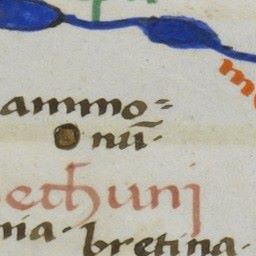 ammo=
nū·
ethunj
nia· bretina·